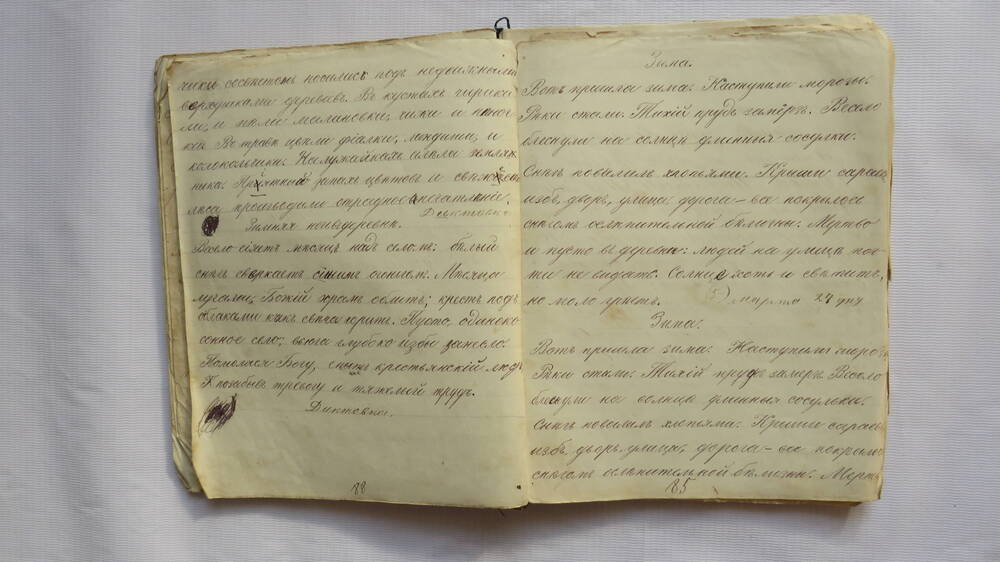 чики сосѣтетъ носились подъ недвижными
верхушками деревьевъ. Въ кустахъ чирика
ли, и пѣли малиновки, чижи и пѣноч
ки. Въ травѣ цвѣли фіалки, ландыши, и
колокольчики. На лужайкахъ алѣла землян
ника. Пріятный запахъ цвѣтовъ и свѣжесть
лѣса производили отрадное впечатленіе.
Диктовка
Зимняя ночь въ деревнѣ.
Весело сіяетъ мѣсяцъ надъ селомъ: бѣлый
снѣгъ сверкаетъ синимъ огнькомъ. Мѣсяца
лучами, Божій храмъ облитъ; крестъ подъ
облаками какъ свѣча горитъ. Пусто, одиноко
сонное село; вьюга глубоко избы занесло.
Помоляся Богу, спитъ крестьянскій людъ
Позабывъ тревогу и тяжелый трудъ.
Диктовка.
18
Зима.
Вотъ пришла зима. Наступили морозы.
Рѣки стали. Тихій прудъ замёрзъ. Весело
блеснули на солнцѣ длинныя сосульки.
Снѣгъ повалилъ хлопьями. Крыши сараевъ,
избъ, дворъ, улица, дорога – все покрылось
снѣгомъ ослѣпительной бѣлизны. Мертво
и пусто въ деревнѣ: людей на улицѣ поч-
ти не видать. Солнце хотя и свѣтитъ,
но мало грѣетъ. 5) марта 24 дня
Зима.
Вотъ пришла зима. Наступили морозы
Рѣки стали. Тихій прудъ замерзъ. Весело
блеснули на солнцѣ длинныя сосульки.
Снѣгъ повалилъ хлопьями. Крыши сараевъ
избъ, дворъ, улица, дорога – все покрыло
снѣгомъ ослѣпительной бѣлизны. Мертв
85